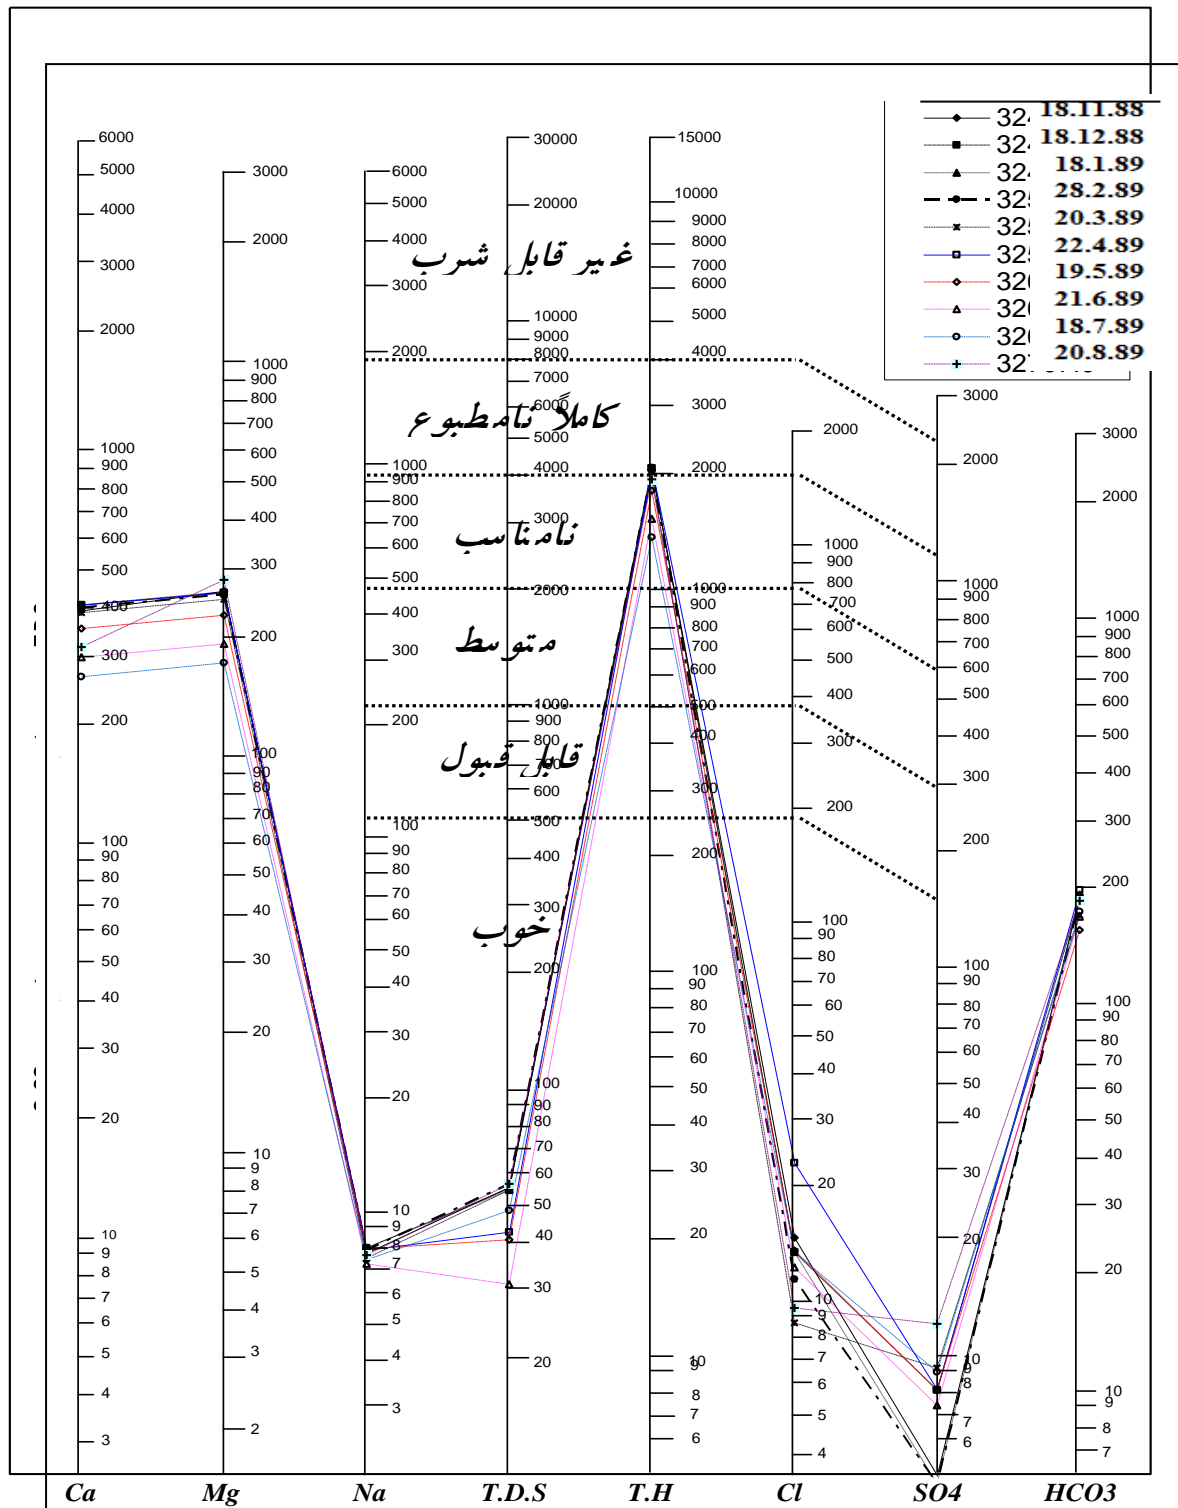 18.11.88
18.12.88
18.1.89
28.2.89
20.3.89
22.4.89
19.5.89
21.6.89
18.7.89
20.8.89
غیر قابل شرب
کاملاً نامطبوع
نامناسب
متوسط
قابل قبول
خوب
6000
5000
4000
3000
2000
1000
900
800
700
600
500
400
300
200
100
90
80
70
60
50
40
30
20
10
9
8
7
6
5
4
3
Ca
3000
2000
1000
900
800
700
600
500
400
300
200
100
90
80
70
60
50
40
30
20
10
9
8
7
6
5
4
3
2
Mg
6000
5000
4000
3000
2000
1000
900
800
700
600
500
400
300
200
100
90
80
70
60
50
40
30
20
10
9
8
7
6
5
4
3
Na
30000
20000
10000
9000
8000
7000
6000
5000
4000
3000
2000
1000
900
800
700
600
500
400
300
200
100
90
80
70
60
50
40
30
20
T.D.S
15000
10000
9000
8000
7000
6000
5000
4000
3000
2000
1000
900
800
700
600
500
400
300
200
100
90
80
70
60
50
40
30
20
10
9
8
7
6
T.H
2000
1000
900
800
700
600
500
400
300
200
100
90
80
70
60
50
40
30
20
10
9
8
7
6
5
4
Cl
3000
2000
1000
900
800
700
600
500
400
300
200
100
90
80
70
60
50
40
30
20
10
9
8
7
6
SO4
3000
2000
1000
900
800
700
600
500
400
300
200
100
90
80
70
60
50
40
30
20
10
9
8
7
HCO3